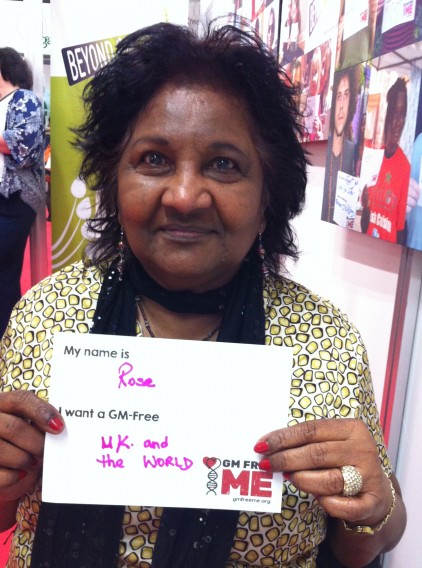 BEYOND
GM FREE
ME
My name is
Rose
I want a GM-Free
U.K. and
the WORLD
GM FREE
ME
gmfreeme.org